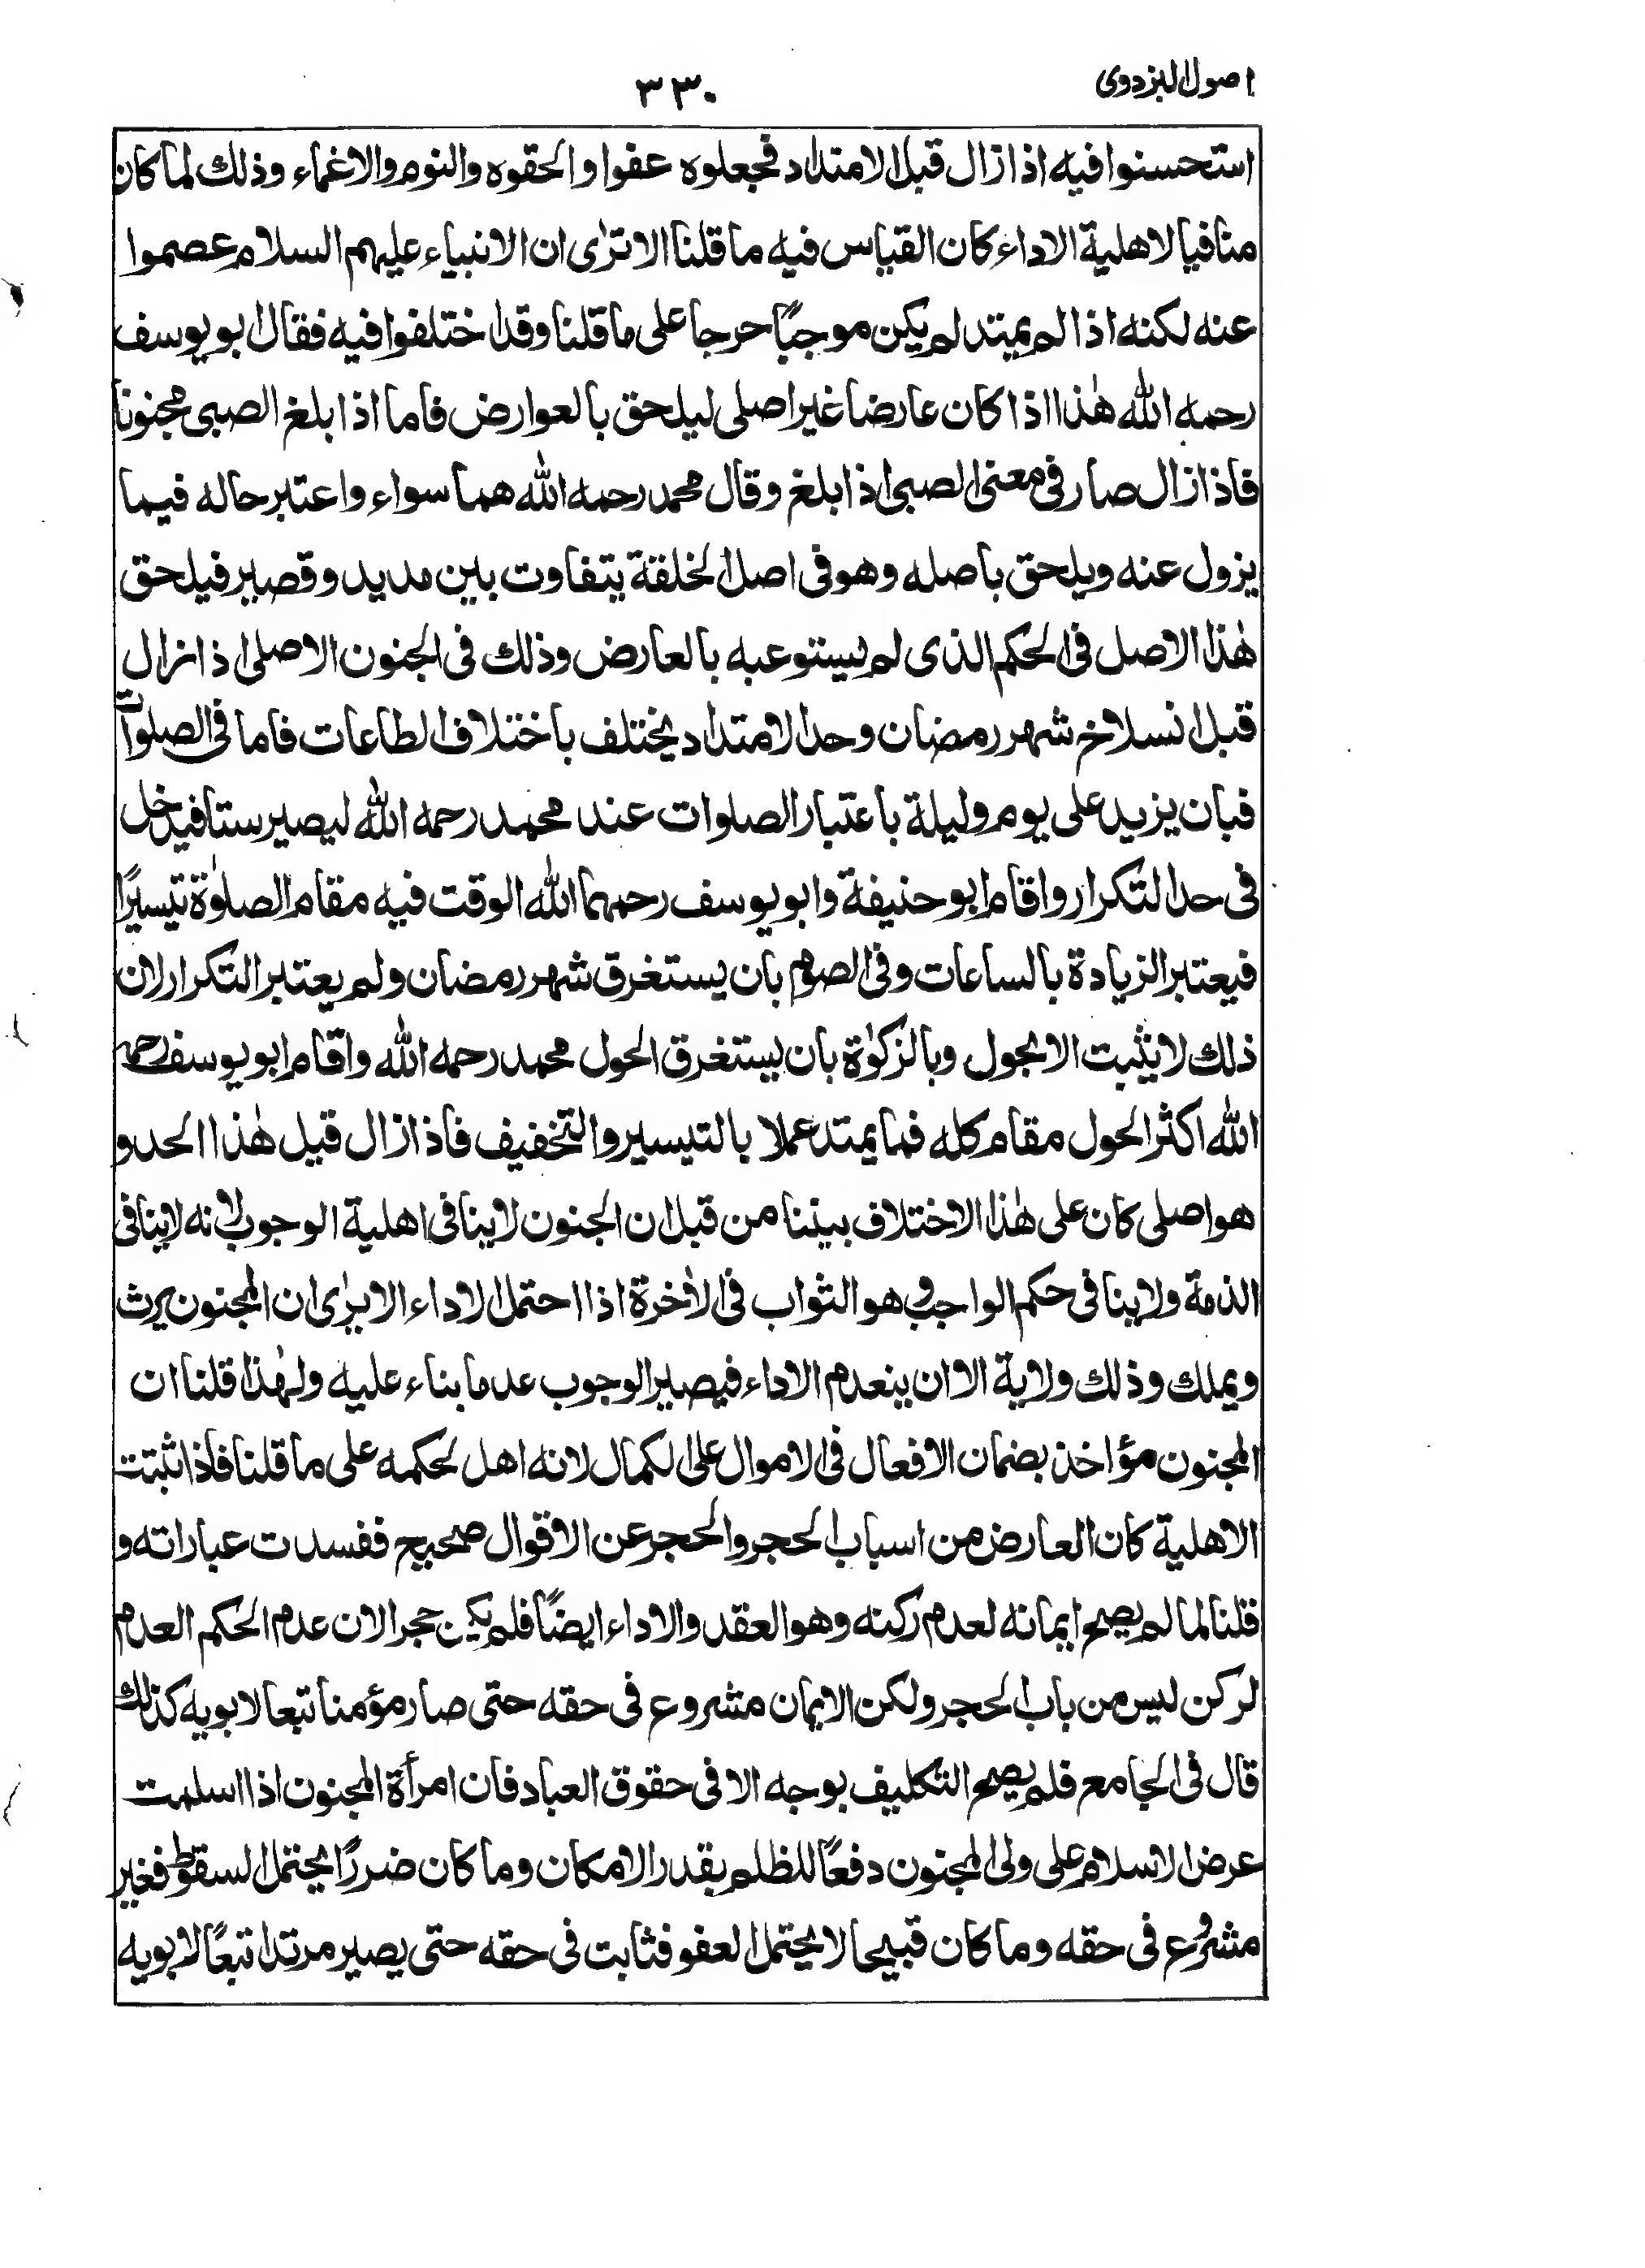 اصول البزدوی
٣٣٠
استحسنوا فيه اذا زال قبل الامتداد فجعلوه عفوا والحقوه والنوم والاغماء وذلك لما كان
منافيا لاهلية الاداء كان القياس فيه ما قلنا الا ترٰى ان الانبياء عليهم السلام عصموا
عنه لكنه اذا لم يمتد لم يكن موجبًا حرجا على ما قلنا وقد اختلفوا فيه فقال ابو يوسف
رحمه الله هٰذا اذا كان عارضا غير اصلى ليلحق بالعوارض فاما اذا بلغ الصبى مجنونا
فاذا زال صار فى معنى الصبى اذا بلغ وقال محمد رحمه الله هما سواء واعتبر حاله فيما
يزول عنه ويلحق باصله وهو فى اصل الخلقة يتفاوت بين مديد وقصير فيلحق
هٰذا الاصل فى الحكم الذى لم يستوعبه بالعارض وذلك فى الجنون الاصلى اذا زال
قبل انسلاخ شهر رمضان وحد الامتداد يختلف باختلاف الطاعات فاما فى الصلوات
فبان يزيد على يوم وليلة باعتبار الصلوات عند محمد رحمه الله ليصير ستا فيدخل
فى حد التكرار واقام ابو حنيفة وابو يوسف رحمهما الله الوقت فيه مقام الصلوٰة تيسيرًا
فيعتبر الزيادة بالساعات وفى الصوم بان يستغرق شهر رمضان ولم يعتبر التكرار لان
ذلك لا يثبت الا بحول وبالزكوٰة بان يستغرق الحول محمد رحمه الله واقام ابو يوسف رحمه
الله اكثر الحول مقام كله فما يمتد عملا بالتيسير والتخفيف فاذا زال قبل هٰذا الحد و
هو اصلى كان على هٰذا الاختلاف بيننا من قبل ان الجنون لا ينافى اهلية الوجوب لانه لا ينافى
الذمة ولا ينافى حكم الواجب وهو الثواب فى الاٰخرة اذا احتمل الاداء الا يرٰى ان المجنون يرث
ويملك وذلك ولاية الا ان ينعدم الاداء فيصير الوجوب عدما بناء عليه ولهٰذا قلنا ان
المجنون مؤاخذ بضمان الافعال فى الاموال على الكمال لانه اهل لحكمه على ما قلنا فاذا ثبتت
الاهلية كان العارض من اسباب الحجر والحجر عن الاقوال صحيح ففسدت عباراته و
قلنا لما لم يصح ايمانه لعدم ركنه وهو العقد والاداء ايضًا فلم يكن حجرا لان عدم الحكم العدم
لركن ليس من باب الحجر ولكن الايمان مشروع فى حقه حتى صار مؤمنا تبعا لابويه كذلك
قال فى الجامع فلم يصح التكليف بوجه الا فى حقوق العباد فان امرأة المجنون اذا اسلمت
عرض الاسلام على ولى المجنون دفعًا للظلم بقدر الامكان وما كان ضررًا يحتمل السقوط فغير
مشروع فى حقه وما كان قبيحا لا يحتمل العفو فثابت فى حقه حتى يصير مرتدا تبعًا لابويه